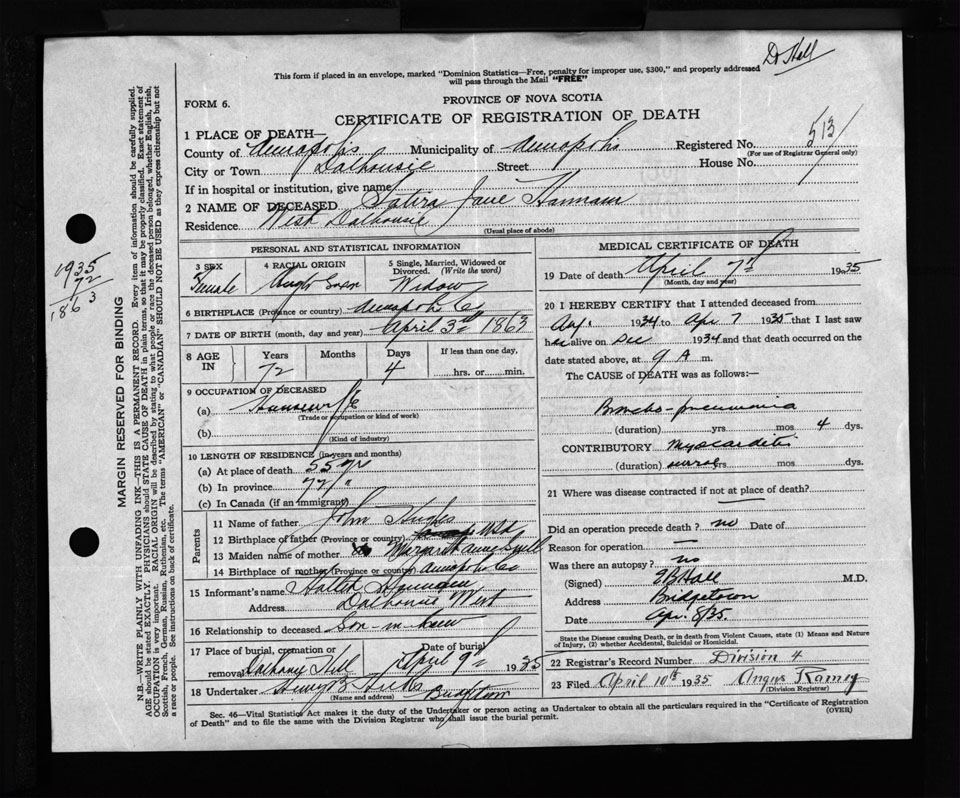 Dr Hall
This form if placed in an envelope, marked "Dominion Statistics—Free, penalty for improper use, $300," and properly addressed
will pass through the Mail "FREE"
FORM 6.
PROVINCE OF NOVA SCOTIA
CERTIFICATE OF REGISTRATION OF DEATH
513
1 PLACE OF DEATH—
County of Annapolis Municipality of Annapolis Registered No.
(For use of Registrar General only)
City or Town Dalhousie Street House No.
If in hospital or institution, give name
2 NAME OF DECEASED Jane Hannam
Residence West Dalhousie
(Usual place of abode)
PERSONAL AND STATISTICAL INFORMATION
3 SEX Female
4 RACIAL ORIGIN Anglo Saxon
5 Single, Married, Widowed or Divorced. (Write the word) Widow
6 BIRTHPLACE (Province or country) Annapolis Co
7 DATE OF BIRTH (month, day and year) April 3rd 1863
8 AGE IN Years 72 Months Days 4 If less than one day, hrs. or min.
9 OCCUPATION OF DECEASED
(a) Housewife
(Trade or occupation or kind of work)
(b)
(Kind of industry)
10 LENGTH OF RESIDENCE (in years and months)
(a) At place of death 55 yr
(b) In province 72 "
(c) In Canada (if an immigrant)
Parents
11 Name of father John
12 Birthplace of father (Province or country)
13 Maiden name of mother Margaret
14 Birthplace of mother (Province or country) Annapolis Co
15 Informant's name Hannam
Address Dalhousie West
16 Relationship to deceased Son-in-law
17 Place of burial, cremation or removal Dalhousie Hill April 9th 1935
18 Undertaker
(Name and address)
MEDICAL CERTIFICATE OF DEATH
19 Date of death April 7th 1935
(Month, day and year)
20 I HEREBY CERTIFY that I attended deceased from
Aug. 1934 to Apr 7 1935 that I last saw
her alive on Dec 1934 and that death occurred on the
date stated above, at 9 A m.
The CAUSE of DEATH was as follows:—
Broncho-pneumonia
(duration) yrs mos 4 dys.
CONTRIBUTORY Myocarditis
(duration) several yrs. mos. dys.
21 Where was disease contracted if not at place of death?
Did an operation precede death? no Date of
Reason for operation —
Was there an autopsy? no
(Signed) E B Hall M.D.
Address Bridgetown
Date Apr. 8/35.
State the Disease causing Death, or in death from Violent Causes, state (1) Means and Nature
of Injury, (2) whether Accidental, Suicidal or Homicidal.
22 Registrar's Record Number Division 4
23 Filed April 10th 1935 Angus Ramey
(Division Registrar)
Sec. 46—Vital Statistics Act makes it the duty of the Undertaker or person acting as Undertaker to obtain all the particulars required in the "Certificate of Registration
of Death" and to file the same with the Division Registrar who shall issue the burial permit.
(OVER)
1935
72
1863
MARGIN RESERVED FOR BINDING
N.B.—WRITE PLAINLY WITH UNFADING INK—THIS IS A PERMANENT RECORD. Every item of information should be carefully supplied.
AGE should be stated EXACTLY. PHYSICIANS should STATE CAUSE OF DEATH in plain terms, so that it may be properly classified. Exact statement of
OCCUPATION is very important. RACIAL ORIGIN will be described by stating to what people or race the deceased person belonged, whether English, Irish,
Scottish, French, German, Russian, Ruthenian, etc. The terms "AMERICAN" or "CANADIAN" SHOULD NOT BE USED as they express citizenship but not
a race or people. See instructions on back of certificate.